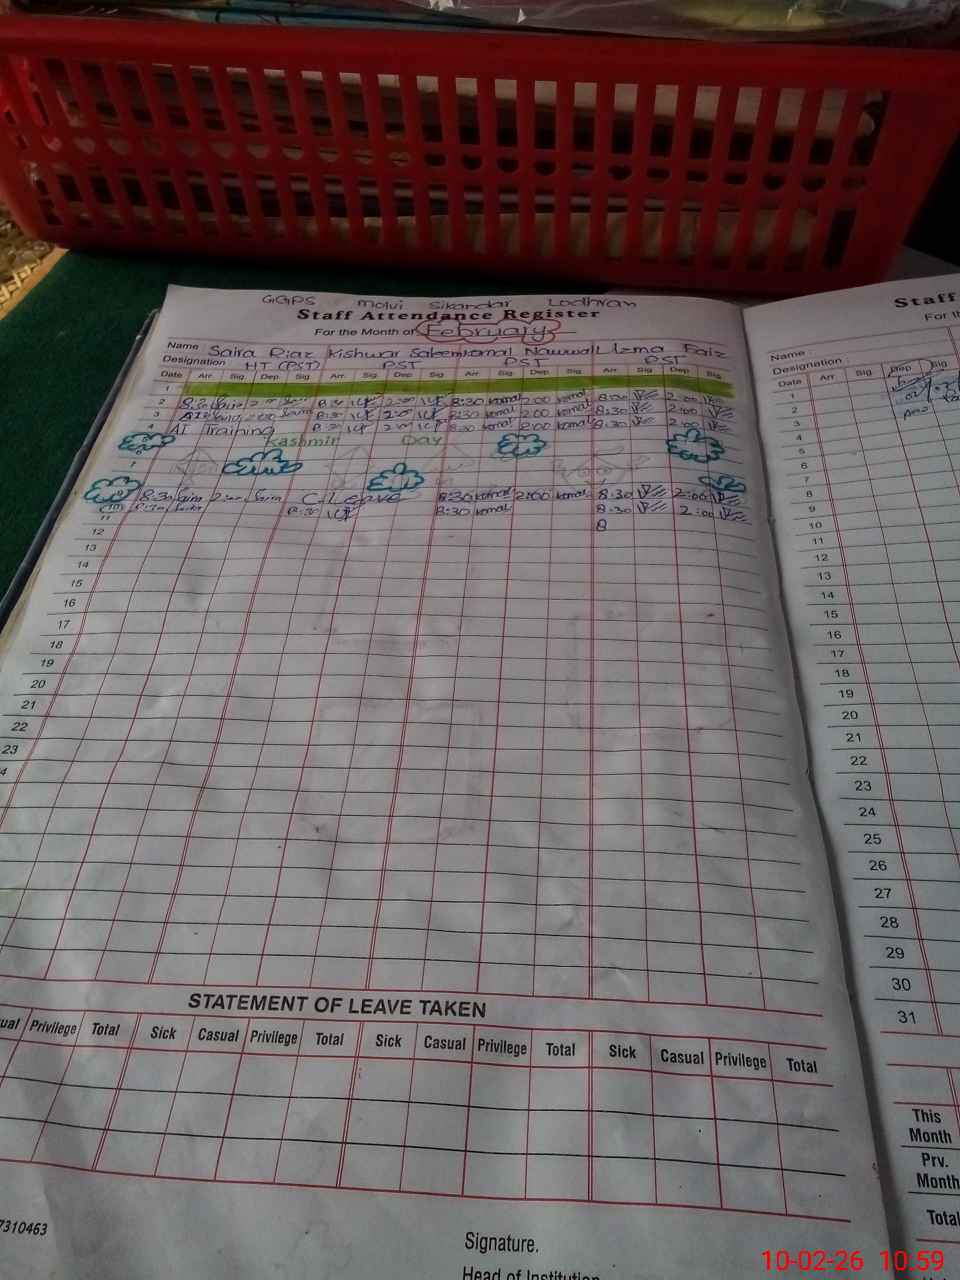 GGPS Molvi Sikandar Lodhran
Staff Attendance Register
For the Month of February
Name Saira Riaz Kishwar Saleem Komal Nawwal Izma Faiz
Designation HT (PST) PST PST PST
Date Arr. Sig. Dep. Sig Arr. Sig. Dep. Sig Arr. Sig. Dep. Sig. Arr. Sig. Dep. Sig.
1
2 8:30 Saira 2:00 Saira 8:30 2:00 8:30 Komal 2:00 Komal 8:30 2:00
3 8:30 2:00 8:30 Komal 2:00 Komal 8:30 2:00
4 AI Training 8:30 2:00 8:30 Komal 2:00 Komal 8:30 2:00
Kashmir Day
7
8:30 Saira 2:00 Saira C. Leave 8:30 Komal 2:00 Komal 8:30 2:00
10 8:30 8:30 Komal 8:30 2:00
11 8
12
13
14
15
16
17
18
19
20
21
22
23
4
STATEMENT OF LEAVE TAKEN
ual Privilege Total Sick Casual Privilege Total Sick Casual Privilege Total Sick Casual Privilege Total
7310463
Signature.
Head of Institution
Staff
For th
Name
Designation :
Date Arr. Sig. Dep Sig
1
2
3
4
5
6
7
8
9
10
11
12
13
14
15
16
17
18
19
20
21
22
23
24
25
26
27
28
29
30
31
This
Month
Prv.
Month
Total
10-02-26 10:59